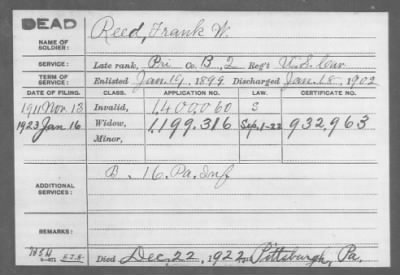 DEAD
NAME OF SOLDIER: Reed, Frank W.
SERVICE: Late rank, Pri Co. B, 2 Reg't U.S. Cav
TERM OF SERVICE: Enlisted Jan. 19, 1899 Discharged Jan. 18, 1902
DATE OF FILING. CLASS. APPLICATION NO. LAW. CERTIFICATE NO.
1911 Nov. 13 Invalid, 1,400,060 S
1923 Jan. 16 Widow, 1,199,316 Sep. 1-22 932,963
Minor,
ADDITIONAL SERVICES: D. 16. Pa. Inf
REMARKS:
Died Dec. 22, 1922 Pittsburgh, Pa.